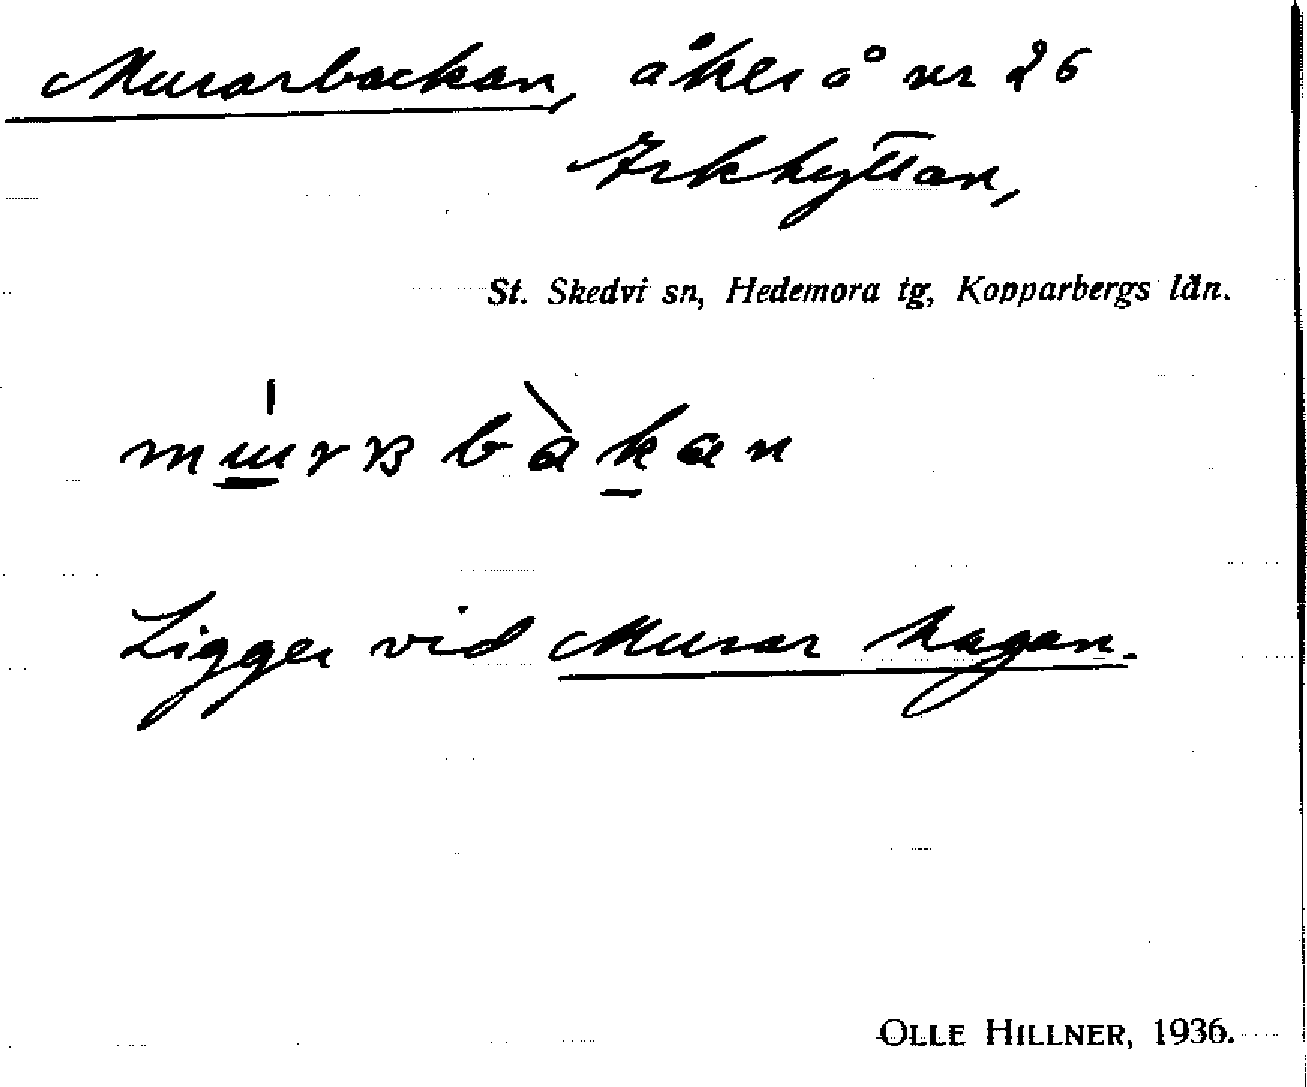 Murarbackan, åker å nr 26
Arkhyttan,
St. Skedvi sn, Hedemora tg, Kopparbergs län.
Ligger vid Murar hagan.
OLLE HILLNER, 1936.